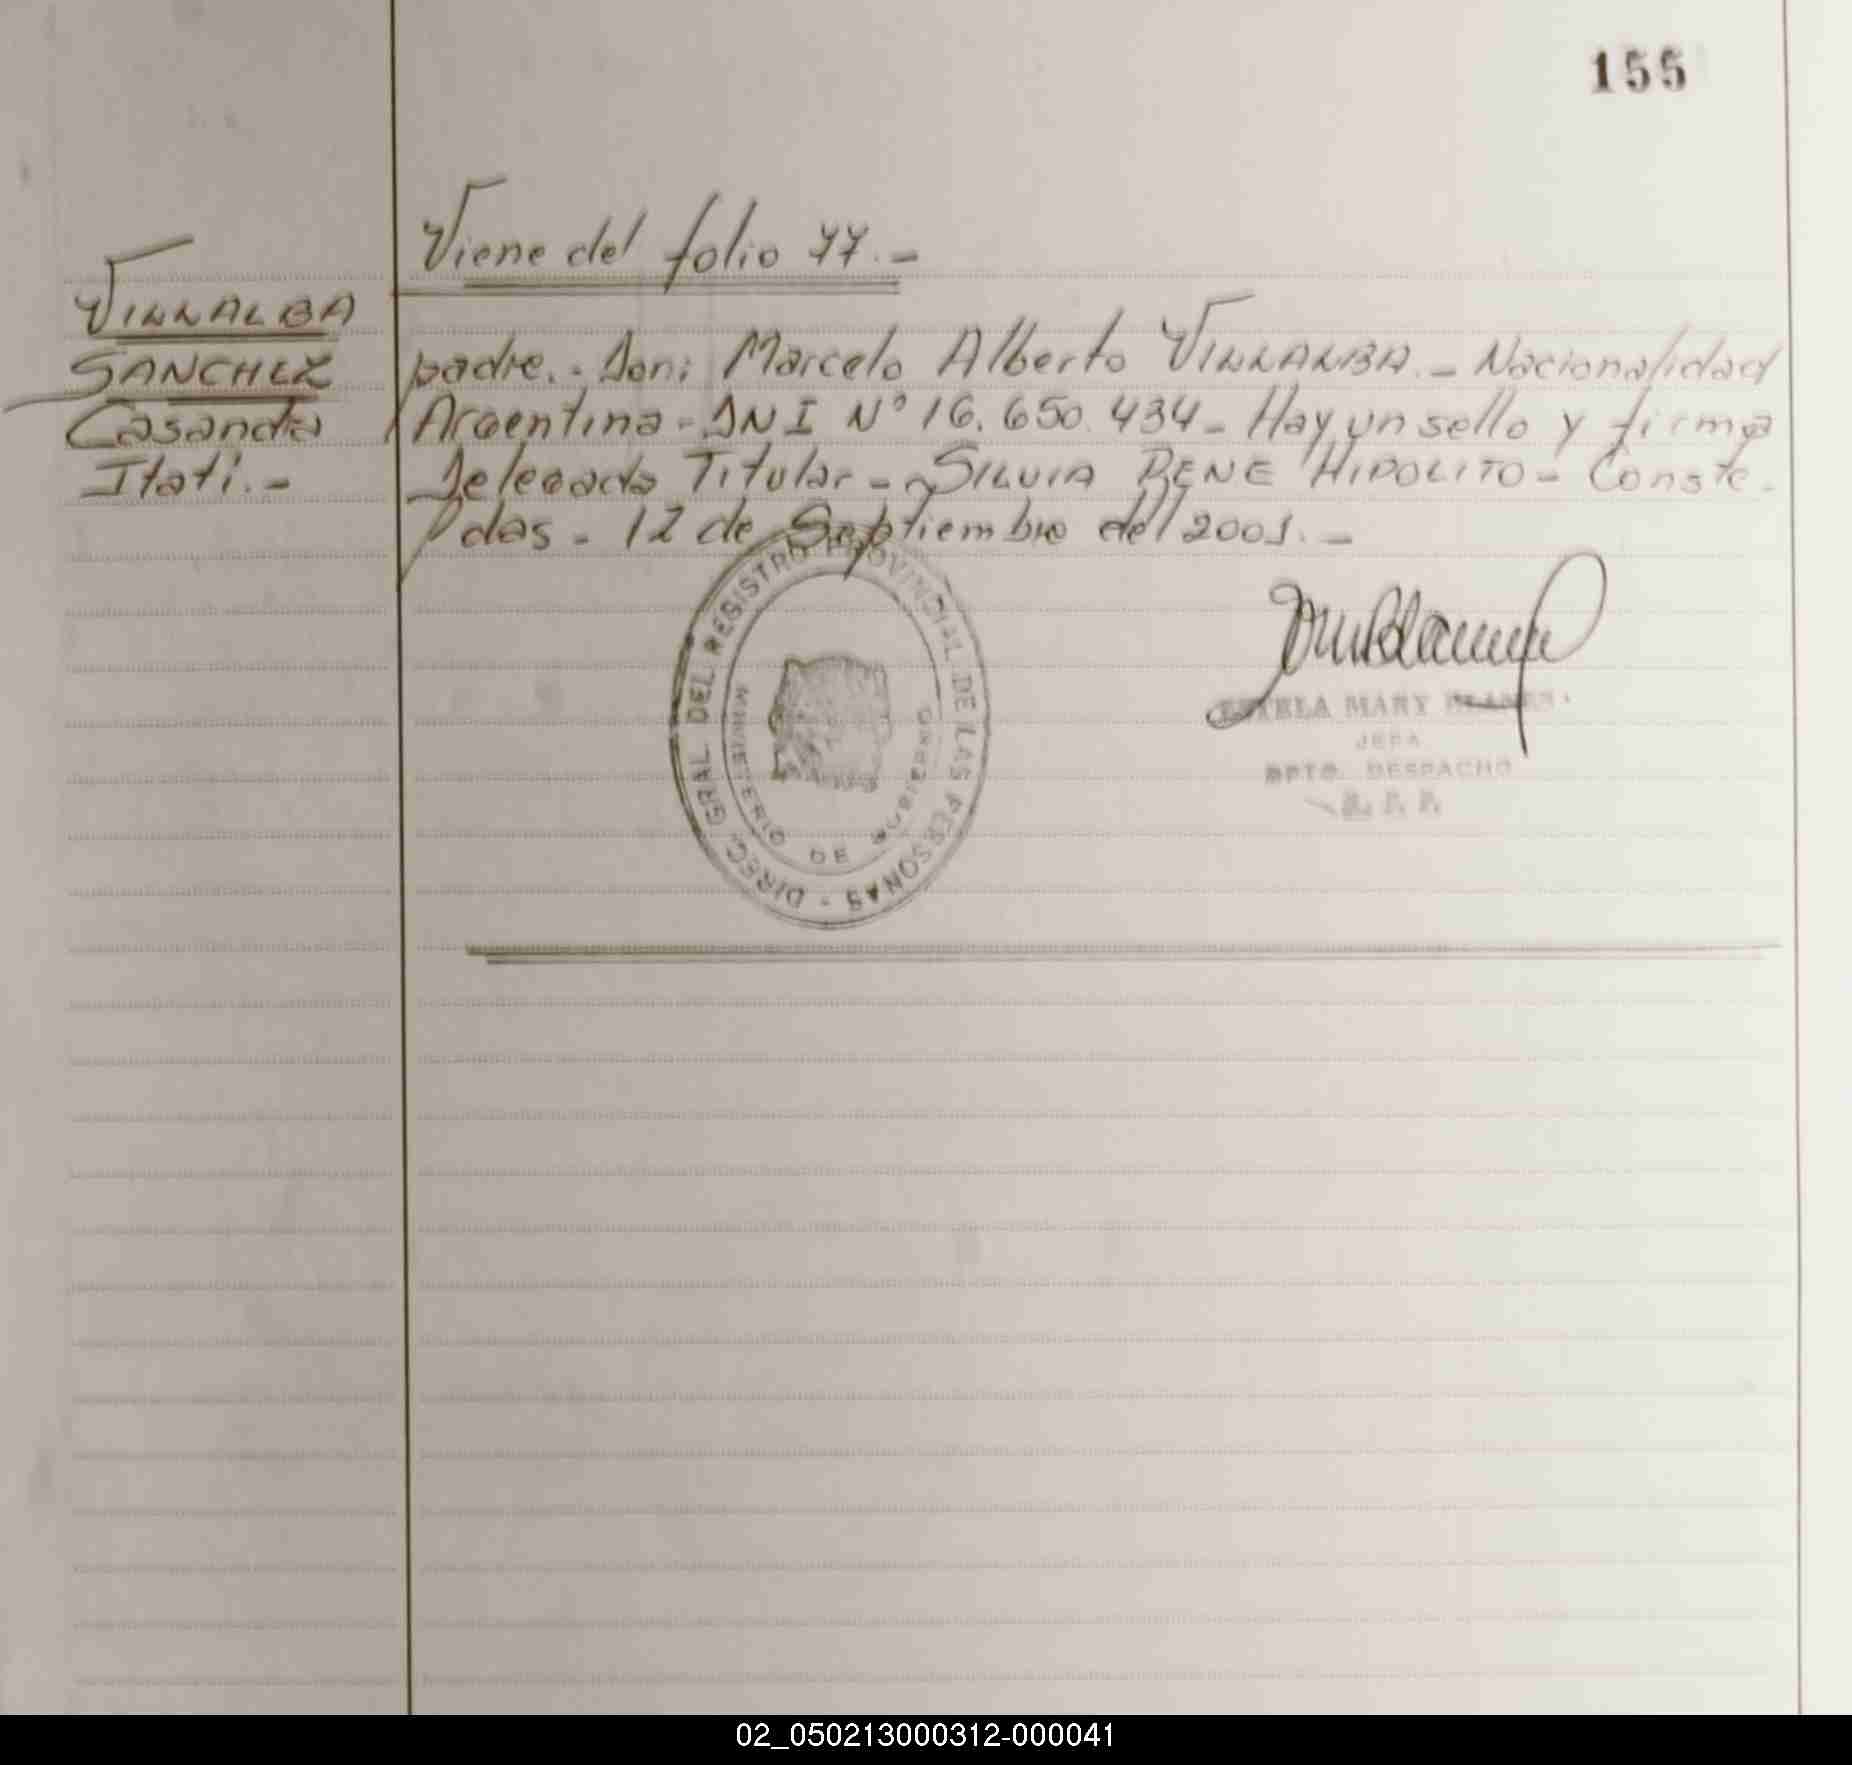 155
Viene del folio 77.-
VILLALBA
SANCHEZ
Casandra
Itati.-
padre.- Don: Marcelo Alberto VILLALBA.- Nacionalidad
Argentina- DNI N° 16.650.434- Hay un sello y firma
Delegada Titular- SILVIA RENE HIPOLITO- Conste.
Pdas- 12 de Septiembre del 2001.-
DIREC. GRAL DEL REGISTRO PROVINCIAL DE LAS PERSONAS -
MINISTERIO DE GOBIERNO
ESTELA MARY
JEFA
DPTO. DESPACHO
02_050213000312-000041